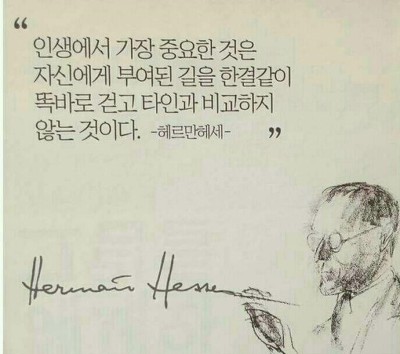 “
인생에서 가장 중요한 것은
자신에게 부여된 길을 한결같이
똑바로 걷고 타인과 비교하지
않는 것이다. -헤르만헤세- ”
Hermann Hesse